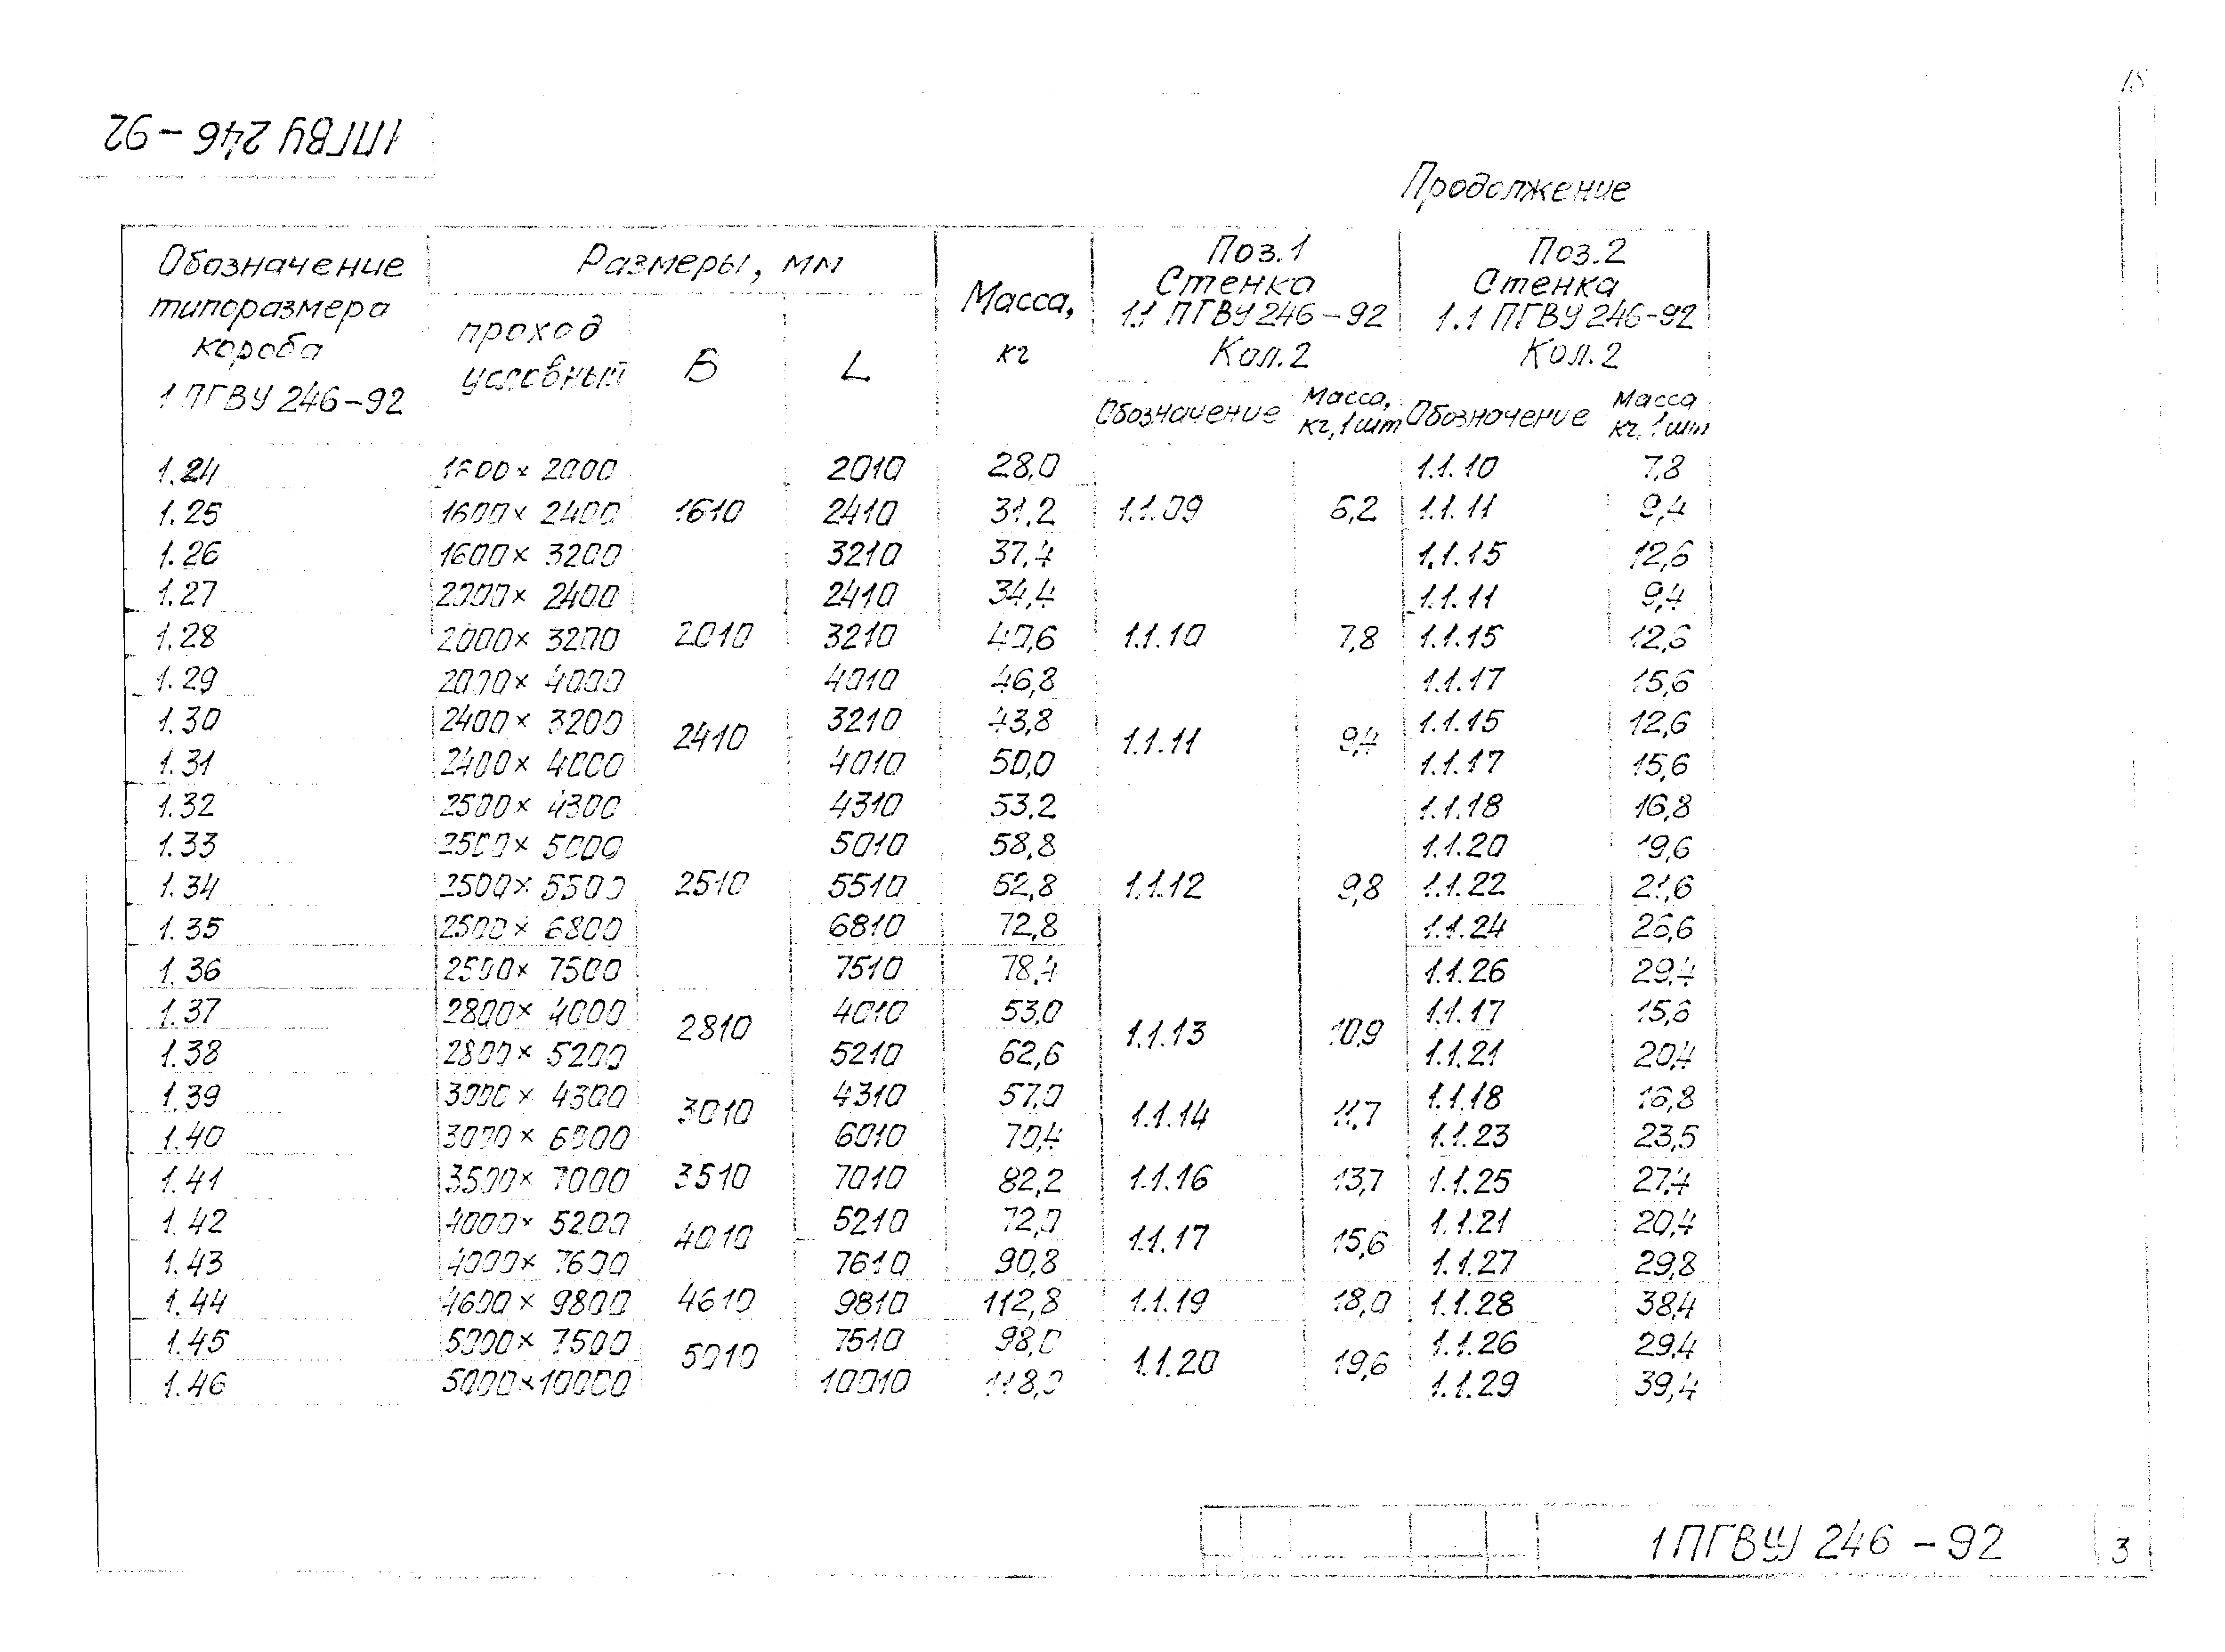 18
1ПГВУ 246-92
Продолжение
Обозначение типоразмера короба 1 ПГВУ 246-92 | Размеры, мм | Масса, кг | Поз.1 Стенка 1.1 ПГВУ 246-92 Кол.2 | Поз.2 Стенка 1.1 ПГВУ 246-92 Кол.2
проход условный | Б | L | Обозначение | Масса, кг, 1шт | Обозначение | Масса кг, 1шт
1.24 1600×2000 2010 28,0 1.1.10 7,8
1.25 1600×2400 1610 2410 31,2 1.1.09 6,2 1.1.11 9,4
1.26 1600×3200 3210 37,4 1.1.15 12,6
1.27 2000×2400 2410 34,4 1.1.11 9,4
1.28 2000×3200 2010 3210 40,6 1.1.10 7,8 1.1.15 12,6
1.29 2000×4000 4010 46,8 1.1.17 15,6
1.30 2400×3200 2410 3210 43,8 1.1.11 9,4 1.1.15 12,6
1.31 2400×4000 4010 50,0 1.1.17 15,6
1.32 2500×4300 4310 53,2 1.1.18 16,8
1.33 2500×5000 5010 58,8 1.1.20 19,6
1.34 2500×5500 2510 5510 62,8 1.1.12 9,8 1.1.22 21,6
1.35 2500×6800 6810 72,8 1.1.24 26,6
1.36 2500×7500 7510 78,4 1.1.26 29,4
1.37 2800×4000 2810 4010 53,0 1.1.13 10,9 1.1.17 15,6
1.38 2800×5200 5210 62,6 1.1.21 20,4
1.39 3000×4300 3010 4310 57,0 1.1.14 11,7 1.1.18 16,8
1.40 3000×6000 6010 70,4 1.1.23 23,5
1.41 3500×7000 3510 7010 82,2 1.1.16 13,7 1.1.25 27,4
1.42 4000×5200 4010 5210 72,0 1.1.17 15,6 1.1.21 20,4
1.43 4000×7600 7610 90,8 1.1.27 29,8
1.44 4600×9800 4610 9810 112,8 1.1.19 18,0 1.1.28 38,4
1.45 5000×7500 5010 7510 98,0 1.1.20 19,6 1.1.26 29,4
1.46 5000×10000 10010 118,0 1.1.29 39,4
1ПГВУ 246-92
3